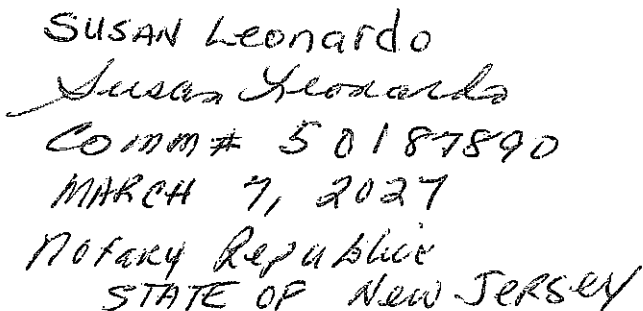 SUSAN Leonardo
Susan Leonardo
Comm# 50187890
MARCH 7, 2027
Notary Republic
STATE OF New Jersey